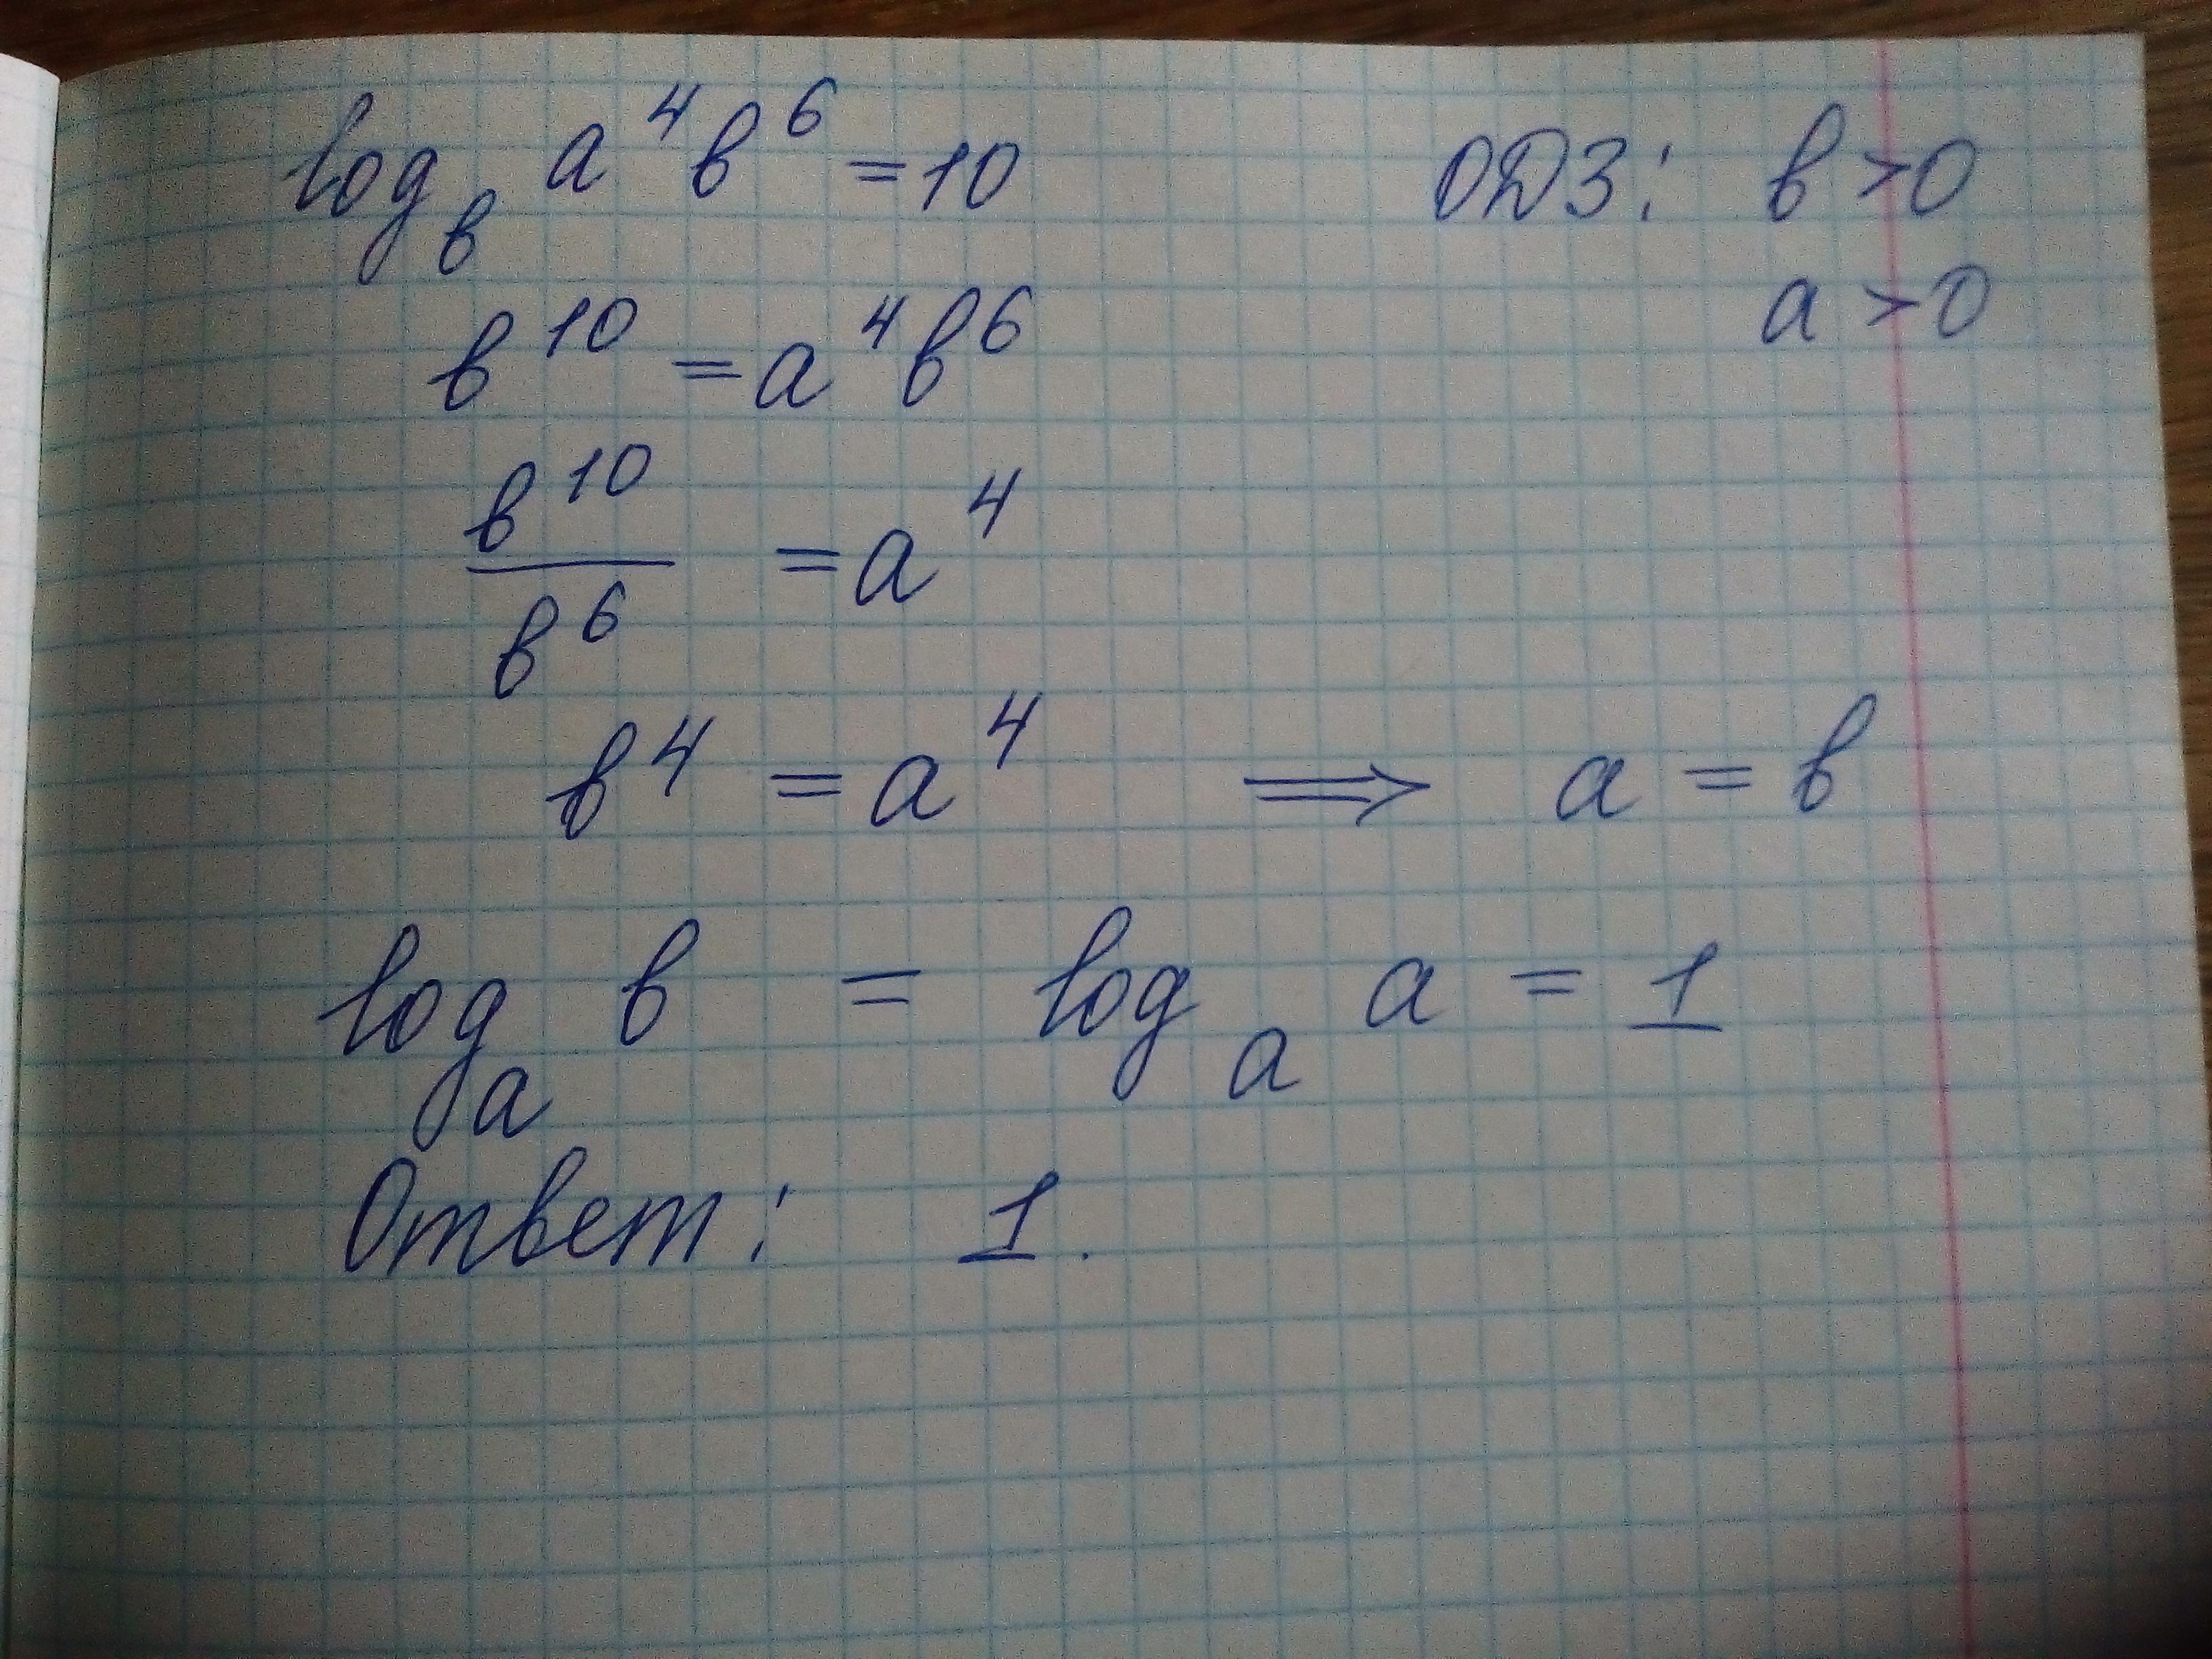 log_в a⁴в⁶ = 10 ОДЗ: в > 0
a > 0
в¹⁰ = a⁴в⁶
в¹⁰/в⁶ = a⁴
в⁴ = a⁴ ⟹ a = в
log_a в = log_a a = 1
Ответ: 1.